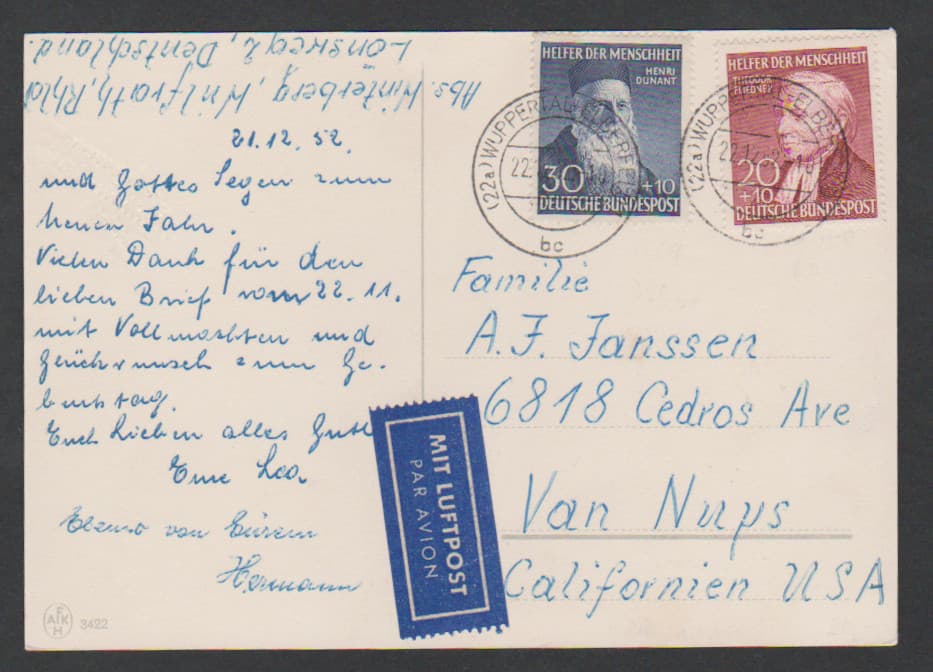 Abs. Winterberg, Wülfrath, Rhld
Lönsweg 2, Deutschland.
21.12.52.
und Gottes Segen zum
neuen Jahr.
Vielen Dank für den
lieben Brief vom 22.11.
mit Vollmachten und
Glückwunsch zum Ge-
burtstag.
Euch Lieben alles Gute
Eure Lea
Ebenso von Eurem
Hermann
F
AKK
H
3422
HELFER DER MENSCHHEIT
HENRI
DUNANT
30 +10
DEUTSCHE BUNDESPOST
HELFER DER MENSCHHEIT
THEODOR
FLIEDNER
20
+10
DEUTSCHE BUNDESPOST
(22a) WUPPERTAL-ELBERFELD
22.
bc
(22a) WUPPERTAL-ELBERFELD
22.12.
bc
Familie
A.J. Janssen
6818 Cedros Ave
Van Nuys
Californien USA
MIT LUFTPOST
PAR AVION